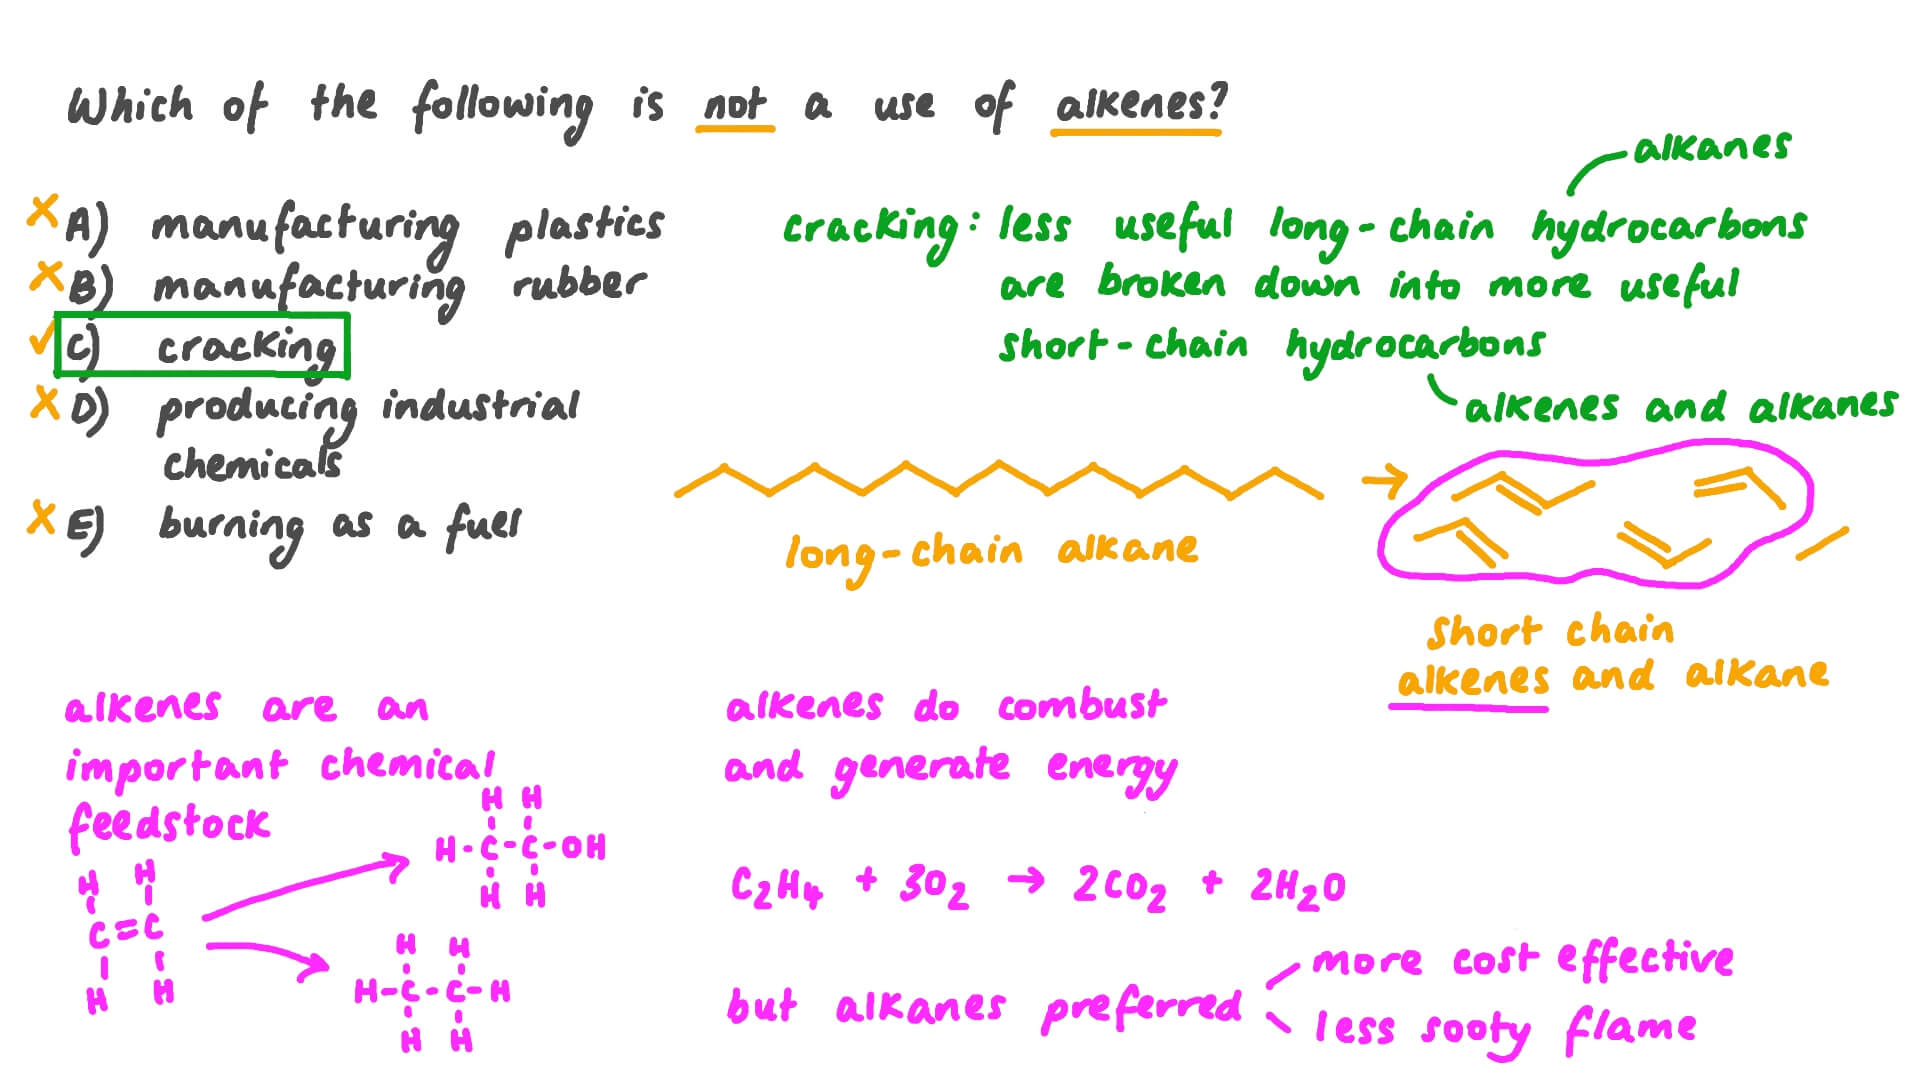 Which of the following is not a use of alkenes?
A) manufacturing plastics
B) manufacturing rubber
C) cracking
D) producing industrial
chemicals
E) burning as a fuel
alkanes
cracking: less useful long-chain hydrocarbons
are broken down into more useful
short-chain hydrocarbons
alkenes and alkanes
long-chain alkane
short chain
alkenes and alkane
alkenes are an
important chemical
feedstock
H H
C=C
H H
H H
H-C-C-OH
H H
H H
H-C-C-H
H H
alkenes do combust
and generate energy
C₂H₄ + 3O₂ → 2CO₂ + 2H₂O
but alkanes preferred
more cost effective
less sooty flame